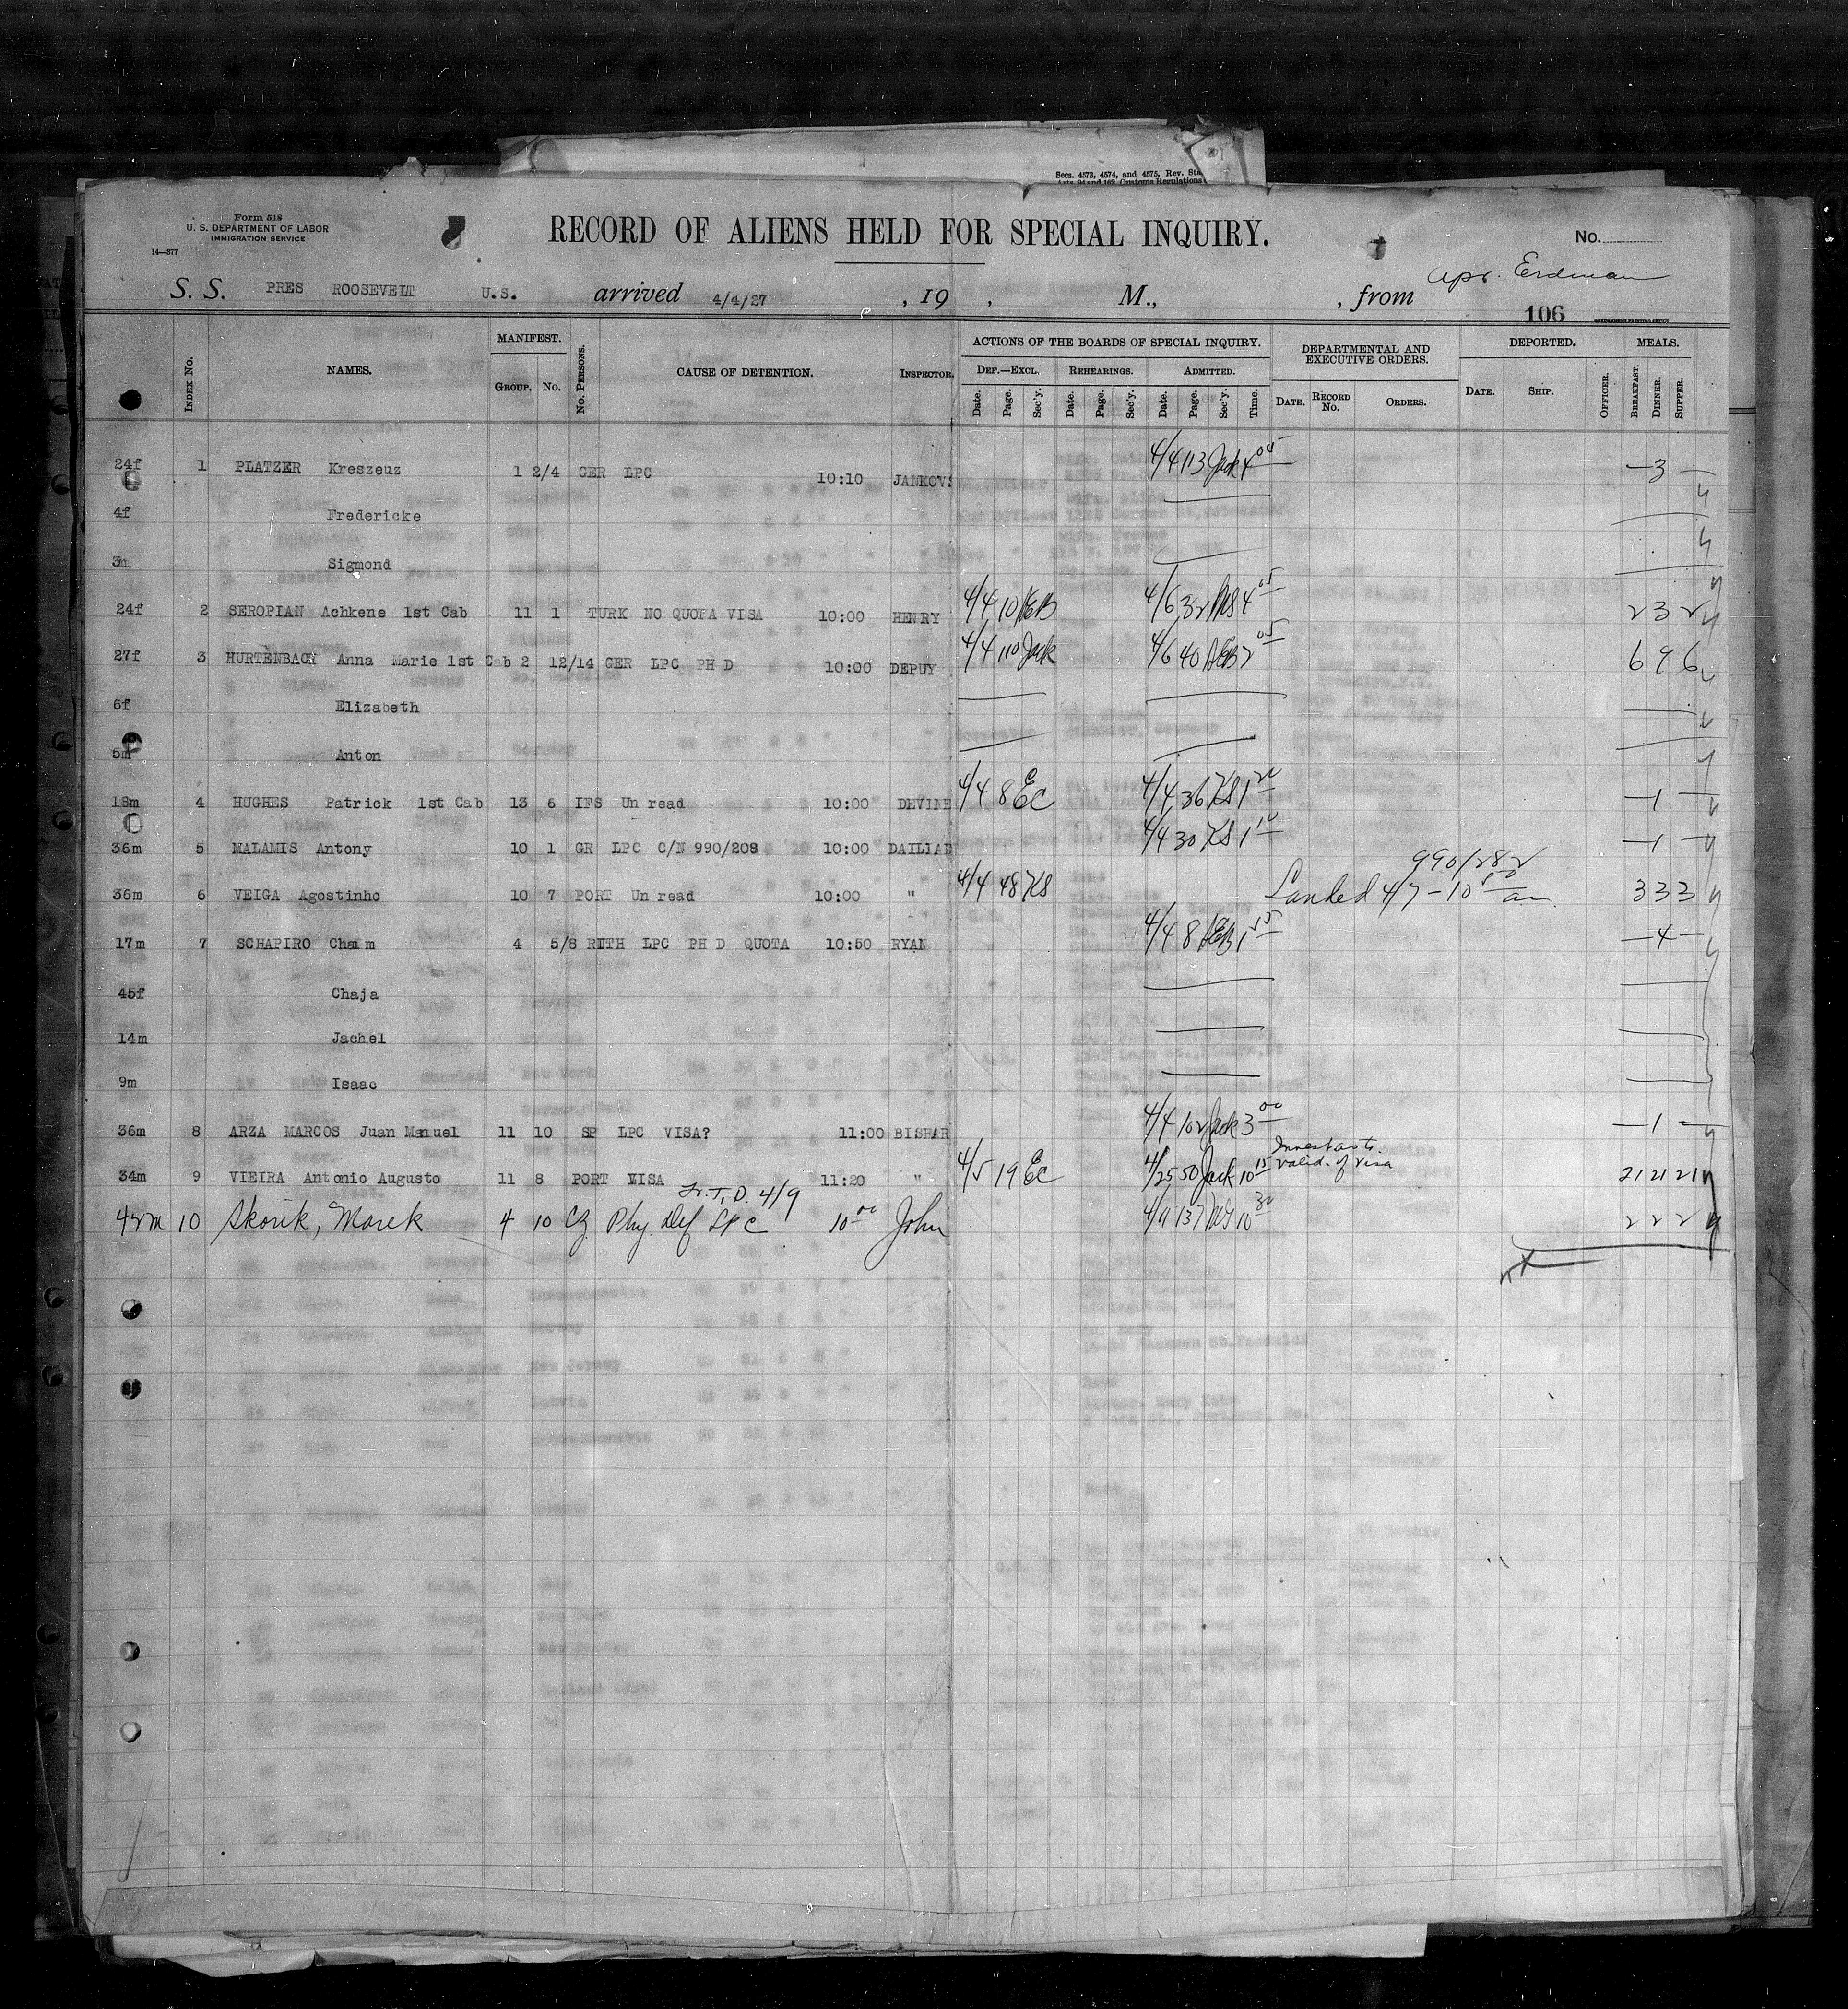 Secs. 4573, 4574, and 4575, Rev. Sta
Form 518
U. S. DEPARTMENT OF LABOR
IMMIGRATION SERVICE
14—577
RECORD OF ALIENS HELD FOR SPECIAL INQUIRY.
No.
S. S. PRES ROOSEVELT U.S. arrived 4/4/27, 19 , M., , from Erdman
106
INDEX No. NAMES. MANIFEST. GROUP. No. No. PERSONS. CAUSE OF DETENTION. INSPECTOR. ACTIONS OF THE BOARDS OF SPECIAL INQUIRY. DEPARTMENTAL AND EXECUTIVE ORDERS. DEPORTED. MEALS.
DEF.—EXCL. REHEARINGS. ADMITTED.
Date. Page. Sec'y. Date. Page. Sec'y. Date. Page. Sec'y. Time. DATE. RECORD No. ORDERS. DATE. SHIP. OFFICER. BREAKFAST. DINNER. SUPPER.
24f 1 PLATZER Kreszeuz 1 2/4 GER LPC 10:10 JANKOVS 4/4 113 Jack 4 05 — 3 —
4f Fredericke
3m Sigmond
24f 2 SEROPIAN Achkene 1st Cab 11 1 TURK NO QUOTA VISA 10:00 HENRY 4/4 10 4/6 32 4 05 2 3 2
27f 3 HURTENBACY Anna Marie 1st Cab 2 12/14 GER LPC PH D 10:00 DEPUY 4/4 110 Jack 4/6 40 05 6 9 6
6f Elizabeth
5m Anton
18m 4 HUGHES Patrick 1st Cab 13 6 IFS Un read 10:00 DEVINE 4/4 8 EC 4/4 36 KS 1 20 — 1 —
36m 5 MALAMIS Antony 10 1 GR LPC C/N 990/208 10:00 DAILIAR 4/4 30 KS 1 10 — 1 —
990/282
36m 6 VEIGA Agostinho 10 7 PORT Un read 10:00 " 4/4 48 KS Landed 4/7 - 10 am 3 3 3
17m 7 SCHAPIRO Chaim 4 5/8 RUTH LPC PH D QUOTA 10:50 RYAN 4/4 8 1 15 — 4 —
45f Chaja
14m Jachel
9m Isaac
36m 8 ARZA MARCOS Juan Manuel 11 10 SP LPC VISA? 11:00 BISHAR 4/4 102 Jack 3 00 — 1 —
34m 9 VIEIRA Antonio Augusto 11 8 PORT VISA 11:20 " 4/5 19 EC 4/25 50 Jack 10 15 valid. of visa 21 21 21
4/9
42m 10 Skorik, Marek 4 10 Cz. Phy. Def LPC 10 00 John 4/11 137 10 30 2 2 2